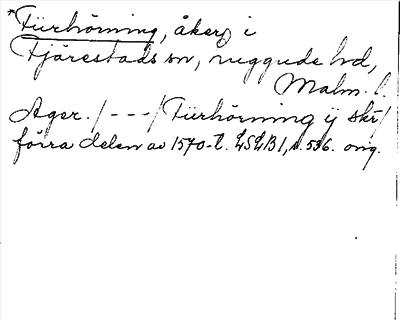 *Fürhörning, åker, i
Fjärestads sn, Luggude hd,
Malm. l.
Ager. /---/ Fürhörning ÿ skr/
förra delen av 1570-t. LSLB1, s. 536. orig.